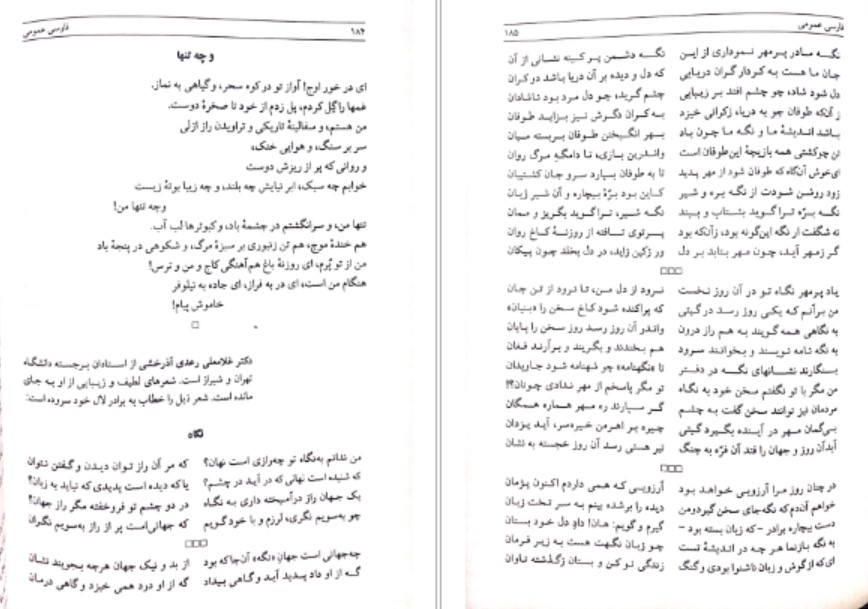 ۱۸۴ فارسی عمومی
و چه تنها
ای در خور اوج! آواز تو در کوه سحر، و گیاهی به نماز.
غمها را گل کردم، پل زدم از خود تا صخرهٔ دوست.
من هستم، و سفالینهٔ تاریکی و تراویدن راز ازلی
سر بر سنگ، و هوایی خنک،
و روانی که پر از ریزش دوست
خوابم چه سبک، ابر نیایش چه بلند، و چه زیبا بوتهٔ زیست
و چه تنها من!
تنها من، و سرانگشتم در چشمهٔ یاد، و کبوترها لب آب.
هم خندهٔ موج، هم تن زنبوری بر سبزهٔ مرگ، و شکوهی در پنجهٔ باد
من از تو پرم، ای روزنهٔ باغ هم‌آهنگی کاج و من و ترس!
هنگام من است، ای در به فراز، ای جاده به نیلوفر
خاموش پیام!
دکتر غلامعلی رعدی آذرخشی از استادان برجسته دانشگاه
تهران و شیراز است. شعرهای لطیف و زیبایی از او به جای
مانده است. شعر ذیل را خطاب به برادر لال خود سروده است:
نگاه
من ندانم به‌نگاه تو چه‌رازی است نهان؟ که مر آن راز توان دیدن و گفتن نتوان
که شنیده است نهانی که در آید در چشم؟ یا که دیده است پدیدی که نیاید به زبان؟
یک جهان راز درآمیخته داری به نگاه در دو چشم تو فروخفته مگر راز جهان؟
چو به‌سویم نگری، لرزم و با خود گویم که جهانی‌است پر از راز به‌سویم نگران
چه‌جهانی است جهانِ «نگه» آن‌جا که بود از بد و نیک جهان هرچه بجویند نشان
گه از او داد پدید آید و گاهی بیداد گه از او درد همی خیزد و گاهی درمان
فارسی عمومی ۱۸۵
نگه مادر پرمهر نموداری از این نگه دشمن پر کینه نشانی از آن
جان ما هست به کردار گران دریایی که دل و دیده بر آن دریا باشد دو کران
دل شود شاد، چو چشم افتد بر زیبایی چشم گرید، چو دل مرد بود ناشادان
ز آنکه طوفان چو به دریا، ز کرانی خیزد به کران دگرش نیز بزاید طوفان
باشد اندیشهٔ ما و نگه ما چون باد بهر انگیختن طوفان بربسته میان
تن چو کشتی همه بازیچهٔ این طوفان است واندرین بازی، تا دامگه مرگ روان
ای‌خوش آن‌گاه که طوفان شود از مهر پدید تا به طوفان بسپارد سر و جان کشتیبان
زود روشن شودت از نگه بره و شیر کاین بود برّهٔ بیچاره و آن شیر ژیان
نگه برّه ترا گوید بشتاب و ببند نگه شیر، ترا گوید بگریز و ممان
نه شگفت ار نگه این‌گونه بود، زآنکه بود پرتوی تافته از روزنهٔ کاخ روان
گر زمهر آید، چون مهر بتابد بر دل ور زکین زاید، در دل بخلد چون پیکان
یاد پرمهر نگاه تو در آن روز نخست نرود از دل من، تا نرود از تن جان
من برآنم که یکی روز رسد در گیتی که پراکنده شود کاخ سخن را «بنیان»
به نگاهی همه گویند به هم راز درون واندر آن روز رسد روز سخن را پایان
به نگه نامه نویسند و بخوانند سرود هم بخندند و بگریند و برآرند فغان
بنگارند نشانهای نگه در دفتر تا «نگهنامه» چو شهنامه شود جاویدان
من مگر با تو نگفتم سخن خود به نگاه تو مگر پاسخم از مهر ندادی چونان؟!
مردمان نیز توانند سخن گفت به چشم گر سپارند ره مهر هماره همگان
بی‌گمان مهر در آینده بگیرد گیتی چیره بر اهرمن خیره‌سر، آید یزدان
آیدآن روز و جهان را فتد آن فرّه به چنگ تیر هستی رسد آن روز خجسته به نشان
در چنان روز مرا آرزویی خواهد بود آرزویی که همی داردم اکنون پژمان
خواهم آن‌دم که نگه‌جای سخن گیرد و من دیده را برشده بینم به سر تخت زبان
دست بیچاره برادر – که زبان بسته بود – گیرم و گویم: هان! داد دل خود بستان
به نگه بازنما هر چه در اندیشهٔ تست چو زبان نگهت هست به زیر فرمان
ای‌که از گوش و زبان ناشنوا بودی و گنگ زندگی نو کن و بستان زگذشته تاوان